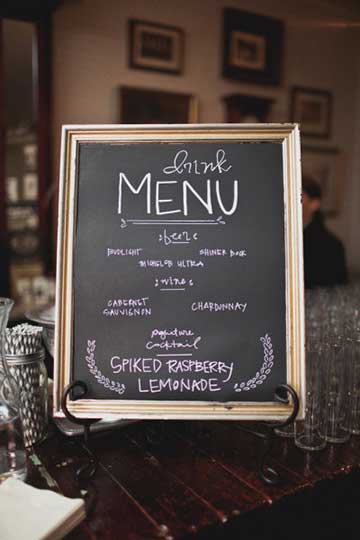 drink
MENU
beer
BUDLIGHT SHINER BOCK
MICHELOB ULTRA
wine
CABERNET SAUVIGNON CHARDONNAY
signature
cocktail
SPIKED RASPBERRY
LEMONADE